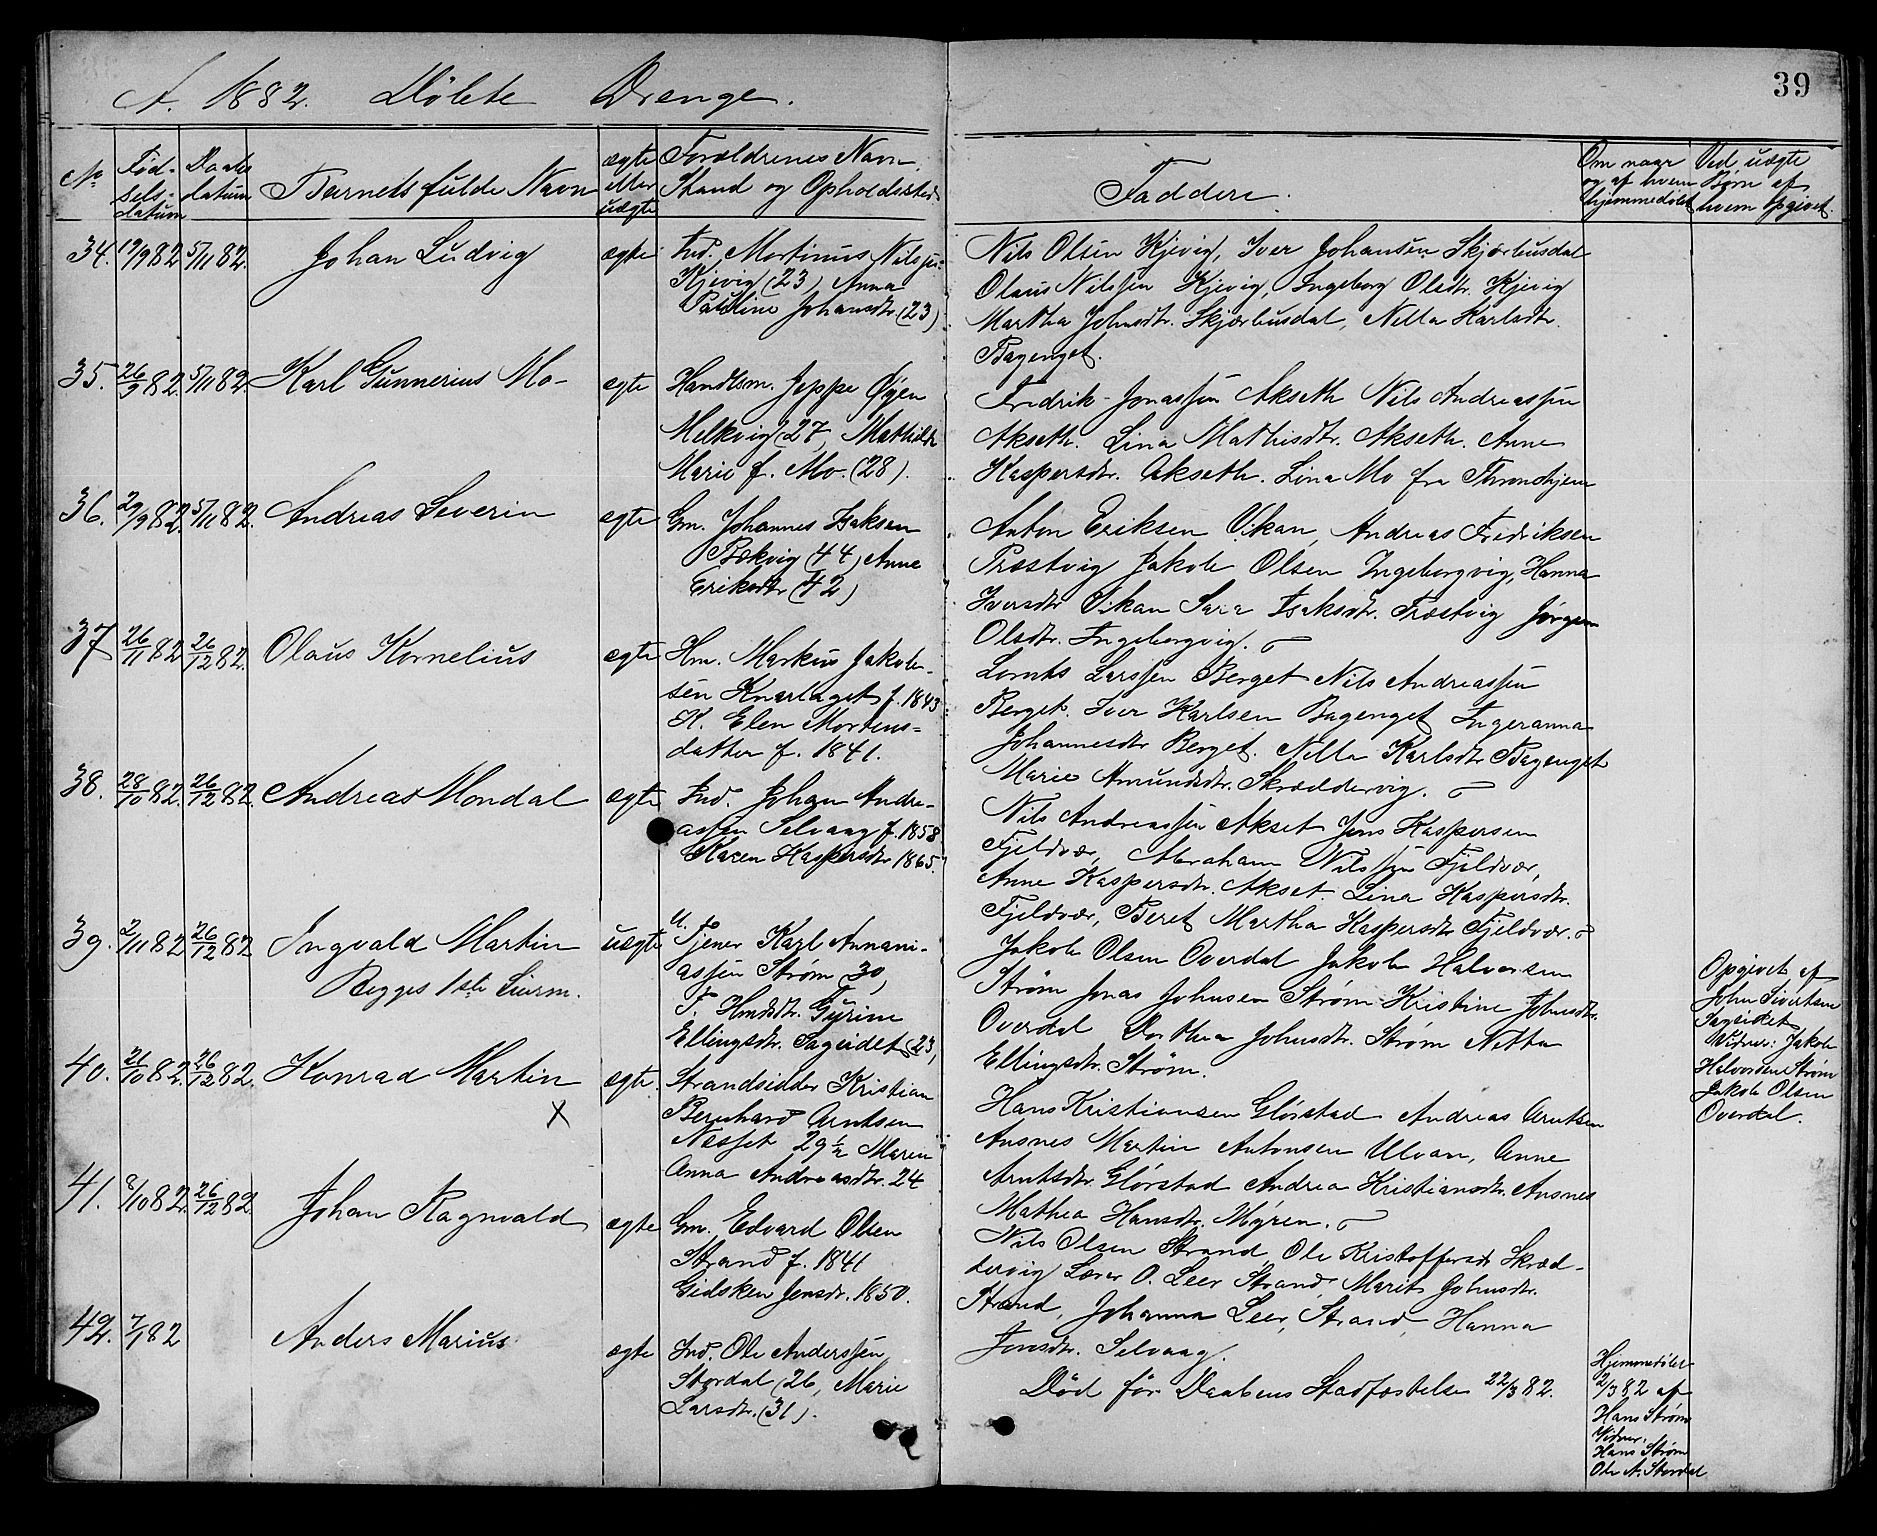 39
A. 1882. Döbte Drenge.
No
Fød-
sels-
datum
Daabs
datum
Barnets fulde Navn
ægte
eller
uægte
Forældrenes Navn,
Stand og Opholdssted
Faddere.
Om naar
og af hvem
hjemmedøbt
Ved uægte
Børn af
hvem Opgivet.
34. 19/9 82 5/11 82. Johan Ludvig ægte Ind. Mortinus Nilssen
Kjevig (23) Anna
Pauline Johansdtr (23)
Nils Olsen Kjevig, Iver Johansen Skjærbusdal
Olaus Nilssen Kjevig, Ingeborg Olsdtr. Kjevig
Martha Johnsdtr. Skjærbusdal, Nilla Karlsdtr.
Bagenget.
35. 26/9 82. 5/11 82. Karl Gunnerius Mo- ægte Handlsm. Jeppe Øyen
Melkvig (27, Mathilde
Marie f. Mo. (28).
Fredrik Jonassen Akseth Nils Andreassen
Akseth. Lina Mathisdtr. Akseth. Anne
Kaspersdtr. Akseth. Lina Mo fra Thronhjem
36. 29/9 82. 5/11 82. Andreas Severin ægte Gm. Johannes Isaksen
Bekvig (44) Anne
Eriksdtr (42)
Anton Eriksen Vikan, Andreas Fredriksen
Præstvig Jakob Olsen Ingeborgvig, Hanna
Iversdtr Vikan Sara Isaksdtr. Præstvig Jørgen
Olsdtr. Ingeborgvig.
37 26/11 82 26/12 82. Olaus Kornelius ægte Hm. Markus Jakob-
sen Knarlaget f. 1843
K. Elen Mortens-
datter f. 1841.
Lornts Larssen Berget Nils Andreassen
Berget. Iver Karlsen Bagenget Ingeranna
Johannesdtr Berget. Nilla Karlsdtr Bagenget
Marie Amundsdtr. Skræddervig.
38. 28/10 82. 26/12 82. Andreas Mondal ægte Ind. Johan Andre-
assen Selvaag f. 1858
Karen Kaspersdtr 1865.
Nils Andreassen Akset Jens Kaspersen
Fjeldvær, Abraham Nilssen Fjeldvær,
Anne Kaspersdtr. Akset. Lina Kaspersdtr.
Fjeldvær, Beret Martha Kaspersdtr Fjeldvær.
39. 2/11 82 26/12 82 Ingvald Martin uægte U. Tjener Karl Annani-
Begges 1ste Leierm.
assen Strøm 30,
F. Hmdsdtr. Gurine
Ellingsdtr. Sagvidet (23,
Jakob Olsen Overdal Jakob Halvorsen
Strøm Jonas Johnsen Strøm Kristine Johnsdtr.
Overdal Dorthea Johnsdtr. Strøm Netta
Ellingsdtr. Strøm.
Opgivet af
John Sivertsen
Sagvidet
Vidner: Jakob
Halvorsen Strøm
Jakob Olsen
Overdal.
40. 21/10 82. 26/12 82. Konrad Martin ægte. Strandsidder Kristian
X
Bernhard Arntsen
Nesset 29 1/2 Maren
Anna Andreasdtr. 24
Hans Kristiansen Glørstad Andreas Arntsen
Ansnes Martin Antonsen Ulvan, Anne
Arntsdtr. Glørstad Andrea Kristiansdtr. Ansnes
Mathea Hansdtr. Myren.
41. 8/10 82. 26/12 82 Johan Ragnvald ægte Gm. Edvard Olsen
Strand f. 1841
Gidsken Jensdr. 1850.
Nils Olsen Strand, Ole Kristoffersen Skræd-
dervig Lærer O. Leer Strand, Marit Johnsdtr.
Strand, Johanna Leer, Strand, Hanna
Jonsdtr. Selvaag.
42. 7/1 82 Anders Marius ægte Ind. Ole Anderssen,
Stordal (26, Marie
Larsdtr. (31).
Død før Daabens Stadfæstelse 22/3 82.
Hjemmedøbt
2/3 82 af
Hans Strøm
Vidner,
Hans Strøm
Ole A. Stordal